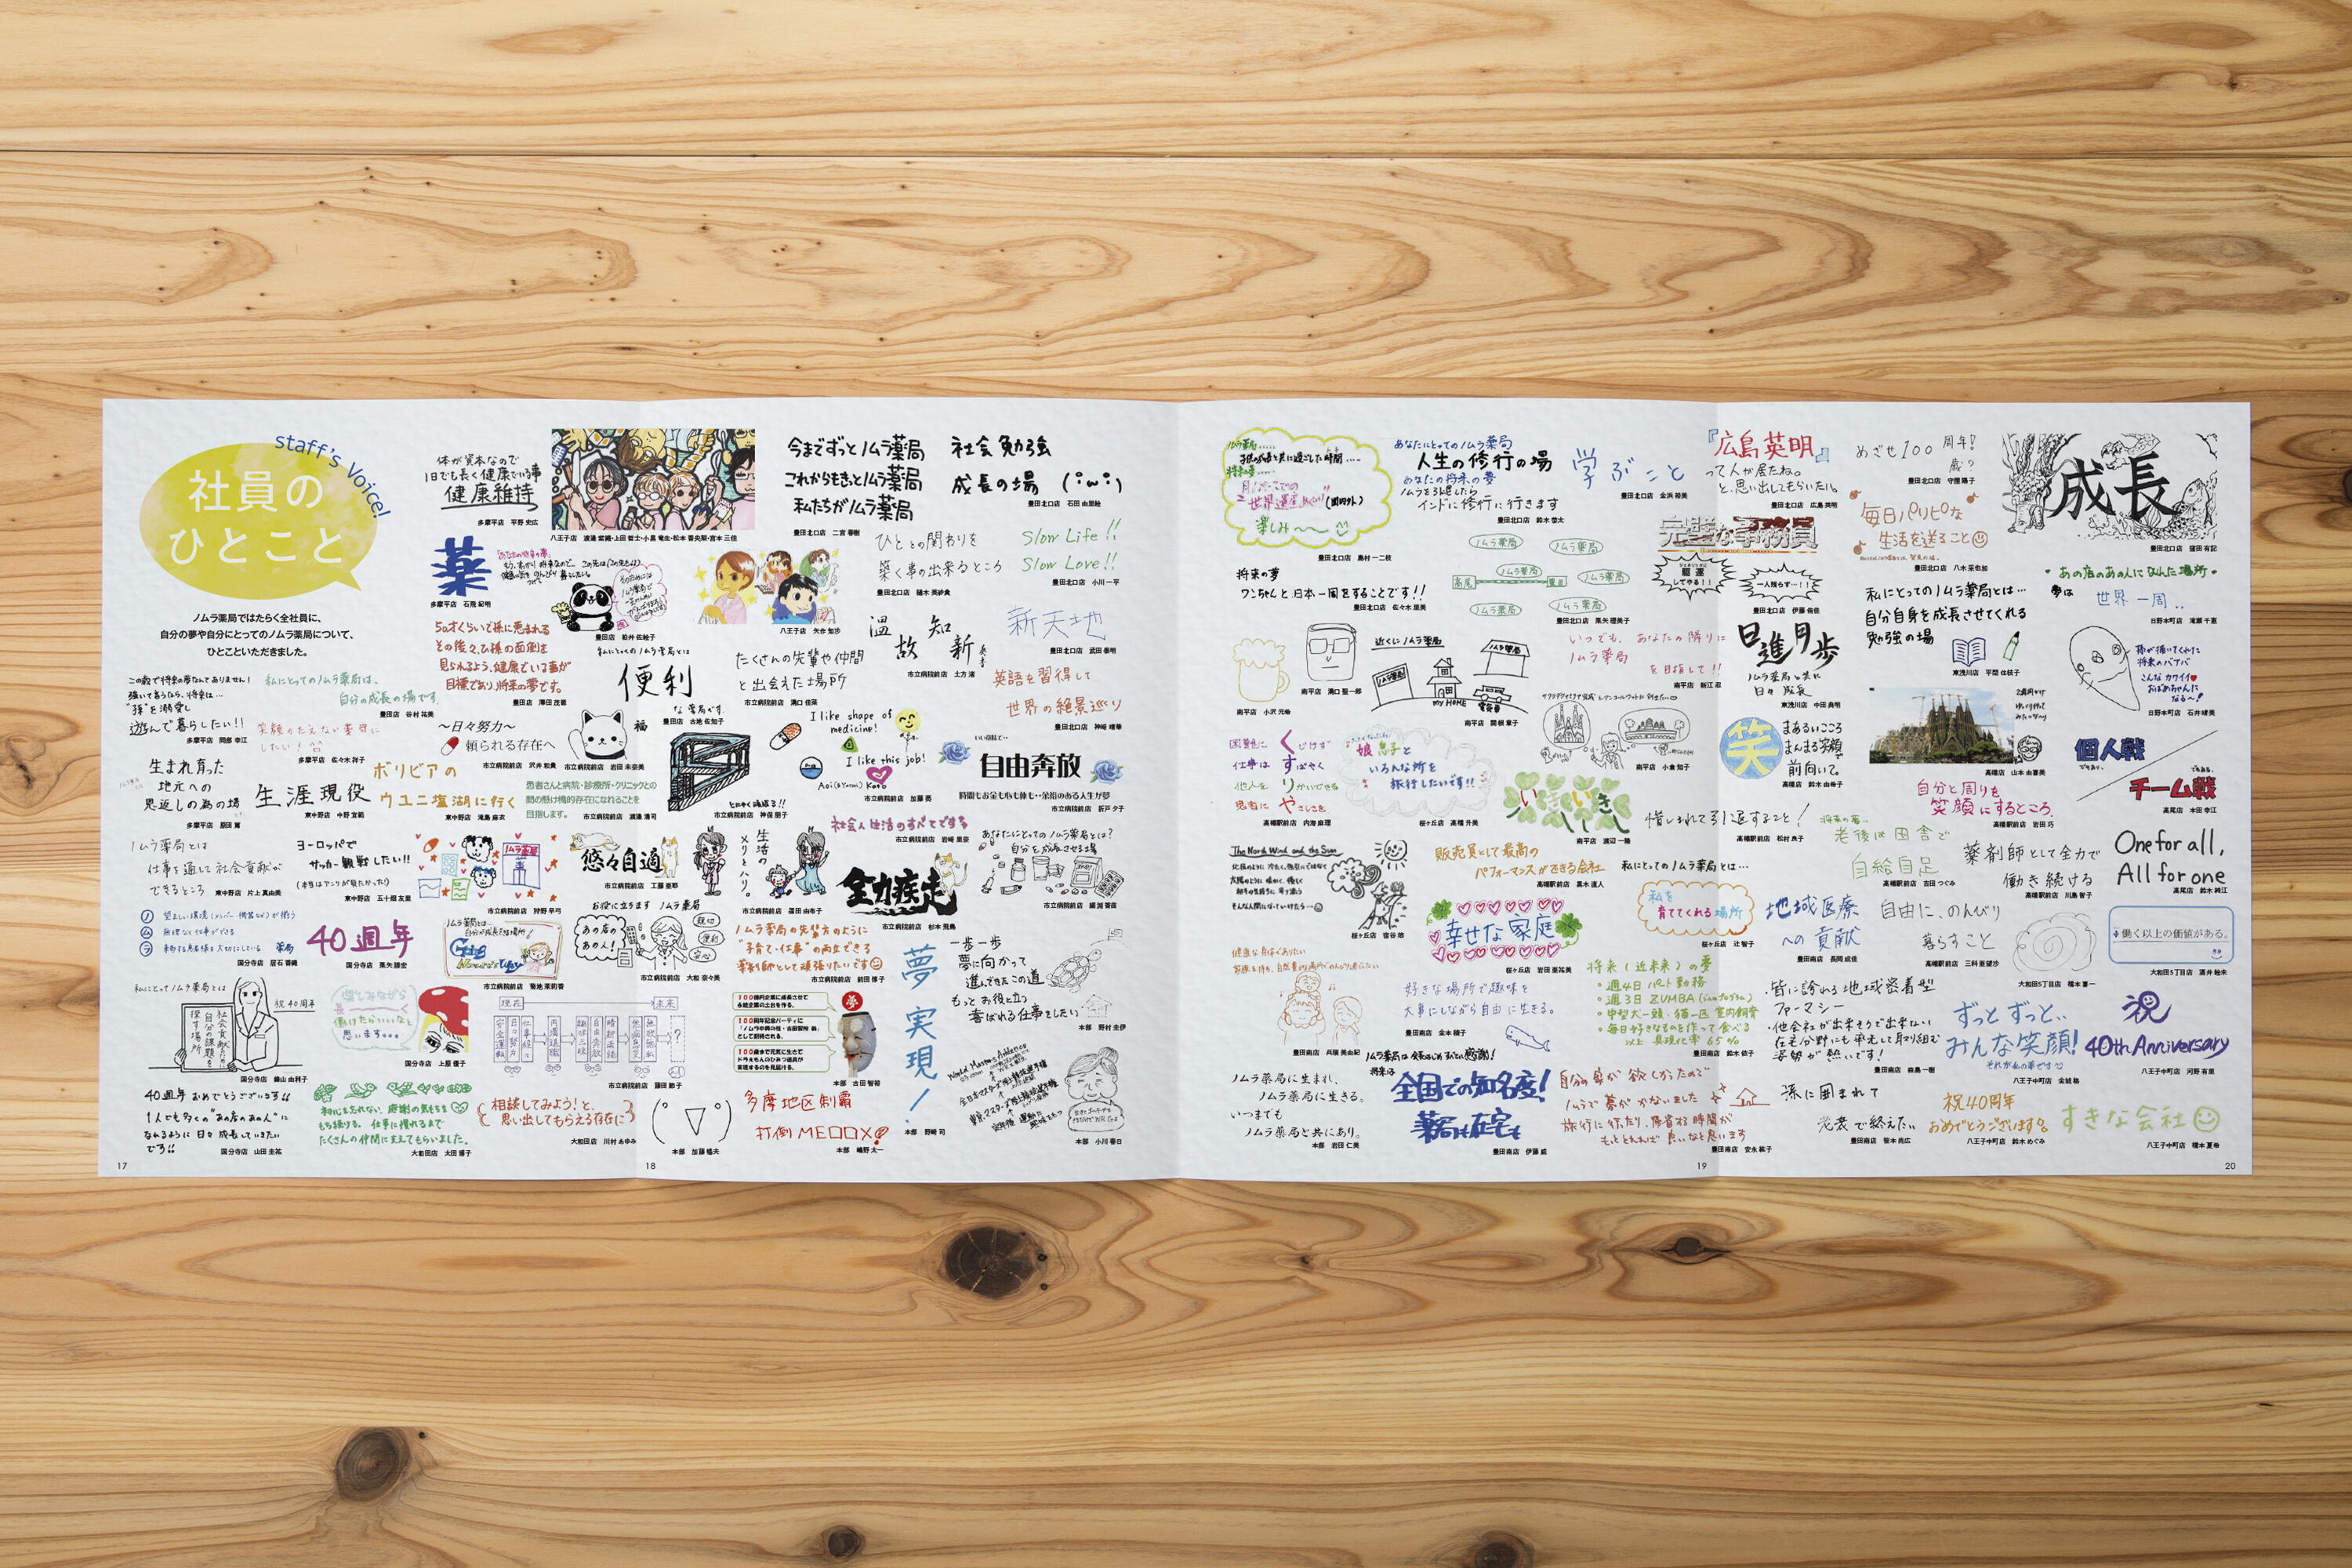 staff's Voice!
社員の
ひとこと
ノムラ薬局ではたらく全社員に、
自分の夢や自分にとってのノムラ薬局について、
ひとこといただきました。
体が資本なので
1日でも長く健康でいる事
健康維持
多摩平店 平野 史広
薬
多摩平店 石飛 紀明
50才くらいで孫に恵まれる
その後々、孫の面倒を
見られるよう、健康でいる事が
目標であり将来の夢です。
豊田店 澤田 茂善
私にとってのノムラ薬局は、
自分の成長の場です
豊田店 谷村 祐美
遊んで暮らしたい!!
多摩平店 岡部 幸江
多摩平店 佐々木 祥子
〜日々努力〜
頼られる存在へ
市立病院前店 沢井 和貴
福
市立病院前店 岩田 未奈美
生まれ育った
地元への
恩返しの為の場
多摩平店 原田 篤
生涯現役
東中野店 中野 宣範
ボリビアの
ウユニ塩湖に行く
東中野店 滝島 麻衣
患者さんと病院・診療所・クリニックとの
間の懸け橋的存在になれることを
目指します。
市立病院前店 渡邉 清司
ノムラ薬局とは
仕事を通して社会貢献が
できるところ
東中野店 片上 真由美
ヨーロッパで
サッカー観戦したい!!
東中野店 五十畑 友里
ノムラ薬局
市立病院前店 狩野 早弓
悠々自適
市立病院前店 工藤 亜耶
40週年
国分寺店 栗矢 勝宏
国分寺店 居石 香織
市立病院前店 菊地 茉莉香
お役に立ちます ノムラ薬局
あの店の
あの人!
市立病院前店 大和 奈々美
私にとってノムラ薬局とは
祝40周年
社会貢献たの
自分の課題を
探す場所
国分寺店 鎌山 由利子
国分寺店 上原 優子
現在
未来
市立病院前店 藤田 敦子
40週年 おめでとうございます!!
1人でも多くの"あの店のあの人"に
なれるように 日々 成長していきたい
です!!
国分寺店 山田 圭祐
初心を忘れない、感謝の気もちを
もち続ける。仕事に慣れるまで
たくさんの仲間に支えてもらいました。
大和田店 太田 博子
相談してみよう!と、
思い出してもらえる存在に
大和田店 川村 あゆみ
17
八王子店 渡邉 紫織・上田 哲士・小黒 竜生・松本 香央梨・宮本 三佳
豊田店 粕井 佐絵子
私にとってのノムラ薬局とは
便利
な薬局です。
豊田店 古地 佐知子
八王子店 矢作 知沙
たくさんの先輩や仲間
と出会えた場所
市立病院前店 溝口 佳菜
今までずっとノムラ薬局
これからもきっとノムラ薬局
私たちがノムラ薬局
豊田北口店 二宮 春樹
社会勉強
成長の場
豊田北口店 石田 由里絵
ひととの関わりを
築く事の出来るところ
豊田北口店 植木 美紗貴
Slow Life!!
Slow Love!!
豊田北口店 小川 一平
温故知新
市立病院前店 土方 准
新天地
豊田北口店 武田 泰明
英語を習得して
世界の絶景巡り
豊田北口店 神崎 瑠華
I like shape of
medicine!
I like this job!
市立病院前店 加藤 葵
とにかく頑張る!!
市立病院前店 神保 朋子
自由奔放
時間もお金も心も体も…余裕のある人生が夢
市立病院前店 折戸 夕子
社会人生活のすべてですね
市立病院前店 岩崎 里奈
生活の
メリとハリ。
市立病院前店 蓬田 由布子
全力疾走
市立病院前店 杉本 飛鳥
あなたにとってのノムラ薬局とは?
自分を成長させる場
市立病院前店 綱渕 香苗
ノムラ薬局の先輩方のように
"子育て・仕事"の両立できる
薬剤師として頑張りたいです
市立病院前店 前田 惇子
夢実現!
本部 野崎 司
一歩一歩
夢に向かって
進んできたこの道
もっとお役に立つ
喜ばれる仕事をしたい
本部 野村 圭伊
100億円企業に成長させて
永続企業の土台を作る。
100周年記念パーティに
「ノムラ中興の祖・古田智裕 翁」
として招待される。
100歳まで元気に生きて
ドラえもんのひみつ道具が
実現するのを見届ける。
夢
本部 古田 智裕
本部 加藤 福夫
多摩地区制覇
打倒MEDDX!?
本部 嶋野 太一
本部 小川 春日
18
世界遺産めぐり
楽しみ〜〜
豊田北口店 島村 一二枝
あなたにとってのノムラ薬局
人生の修行の場
あなたの将来の夢
ノムラを引退したら
インドに修行に行きます
豊田北口店 鈴木 恭太
学ぶこと
豊田北口店 金浜 裕美
『広島英明』
って人が居たね。
と、思い出してもらいたい。
豊田北口店 広島 英明
めざせ100周年!
歳?
豊田北口店 守屋 陽子
成長
豊田北口店 窪田 有記
将来の夢
ワンちゃんと、日本一周をすることです!!
豊田北口店 佐々木 里美
高尾
豊田
ノムラ薬局
豊田北口店 栗矢 理美子
完璧な事務員
豊田北口店 伊藤 侑佳
毎日パリピな
生活を送ること
豊田北口店 八木 采也加
・あの店のあの人になれた場所・
夢は
世界一周..
日野本町店 滝瀬 千恵
南平店 小沢 元希
南平店 溝口 聖一郎
近くにノムラ薬局
my HOME
南平店 関根 章子
いつでも、あなたの隣りに
ノムラ薬局
を目指して!!
南平店 新江 忍
日進月歩
ノムラ薬局と共に
日々成長
東浅川店 中田 典明
私にとってのノムラ薬局とは…
自分自身を成長させてくれる
勉強の場
東浅川店 平間 由枝子
孫が描いてくれた
将来のババ
こんなカワイイ
おばあちゃんに
なる〜!
日野本町店 石井 晴美
困難に くじけず
仕事は すばやく
他人を りかいできる
患者に やさしさを
高幡店 内海 麻理
娘息子と
いろんな所を
旅行したいです!!
桜ヶ丘店 高橋 升美
いきいき
南平店 渡辺 一隆
南平店 小倉 知子
惜しまれて引退すること!
高幡店 松村 良子
笑
まあるいこころ
まんまる笑顔で
前向いて。
高幡店 鈴木 由希子
高幡店 山本 由喜美
個人戦
チーム戦
高尾店 本田 幸江
自分と周りを
笑顔にするところ。
高幡駅前店 岩田 巧
The North Wind and the Sun
桜ヶ丘店 窪谷 悠
販売員として最高の
パフォーマンスができる会社
高幡駅前店 黒木 直人
私にとってのノムラ薬局とは…
私を
育ててくれる場所
桜ヶ丘店 辻 智子
将来の夢…
老後は田舎で
自給自足
高幡駅前店 吉田 つぐみ
薬剤師として全力で
働き続ける
高幡駅前店 川島 智子
One for all,
All for one
高尾店 鈴木 純江
幸せな家庭
桜ヶ丘店 岩田 亜祐美
地域医療
への貢献
豊田南店 長岡 成佳
自由に、のんびり
暮らすこと
高幡駅前店 三科 亜望沙
大和田5丁目店 橋本 喜一
働く以上の価値がある。
大和田5丁目店 酒井 絵未
豊田南店 兵頭 美由紀
好きな場所で趣味を
大事にしながら自由に生きる。
豊田南店 金本 綾子
将来(近未来)の夢
・週4日パート勤務
・週3日ZUMBA
・中型犬一頭・猫一匹 室内飼育
・毎日好きなものを作って食べる
以上 具現化率65%
豊田南店 鈴木 依子
・皆に誇れる地域密着型
ファーマシー
・他会社が出来そうで出来ない
在宅分野にも率先して取り組む
姿勢が熱いです!
豊田南店 森島 一樹
ずっとずっと、
みんな笑顔!
それが私の夢です
八王子中町店 金城 格
祝
40th Anniversary
八王子中町店 河野 有里
ノムラ薬局に生まれ、
ノムラ薬局に生きる。
いつまでも
ノムラ薬局と共にあり。
本部 岩田 仁美
将来は
全国での知名度!
薬局も在宅も
豊田南店 伊藤 威
自分の家が欲しかったので
ノムラで夢がかないました
旅行に行ったり、帰省する時間が
もっととれれば良いなと思います
豊田南店 安永 紘子
孫に囲まれて
老衰で終えたい
豊田南店 笹本 尚広
祝40周年
おめでとうございます。
八王子中町店 鈴木 めぐみ
すきな会社
八王子中町店 橋本 夏希
19
20